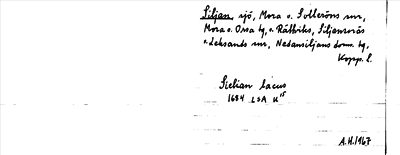 Siljan, sjö, Mora o. Solleröns snr,
Mora o. Orsa tg, o. Rättviks, Siljansnäs
o. Leksands snr, Nedansiljans doms. tg,
Kopp. l.
Sielian lacus
1684 LSA K¹⁵
A.H. 1967